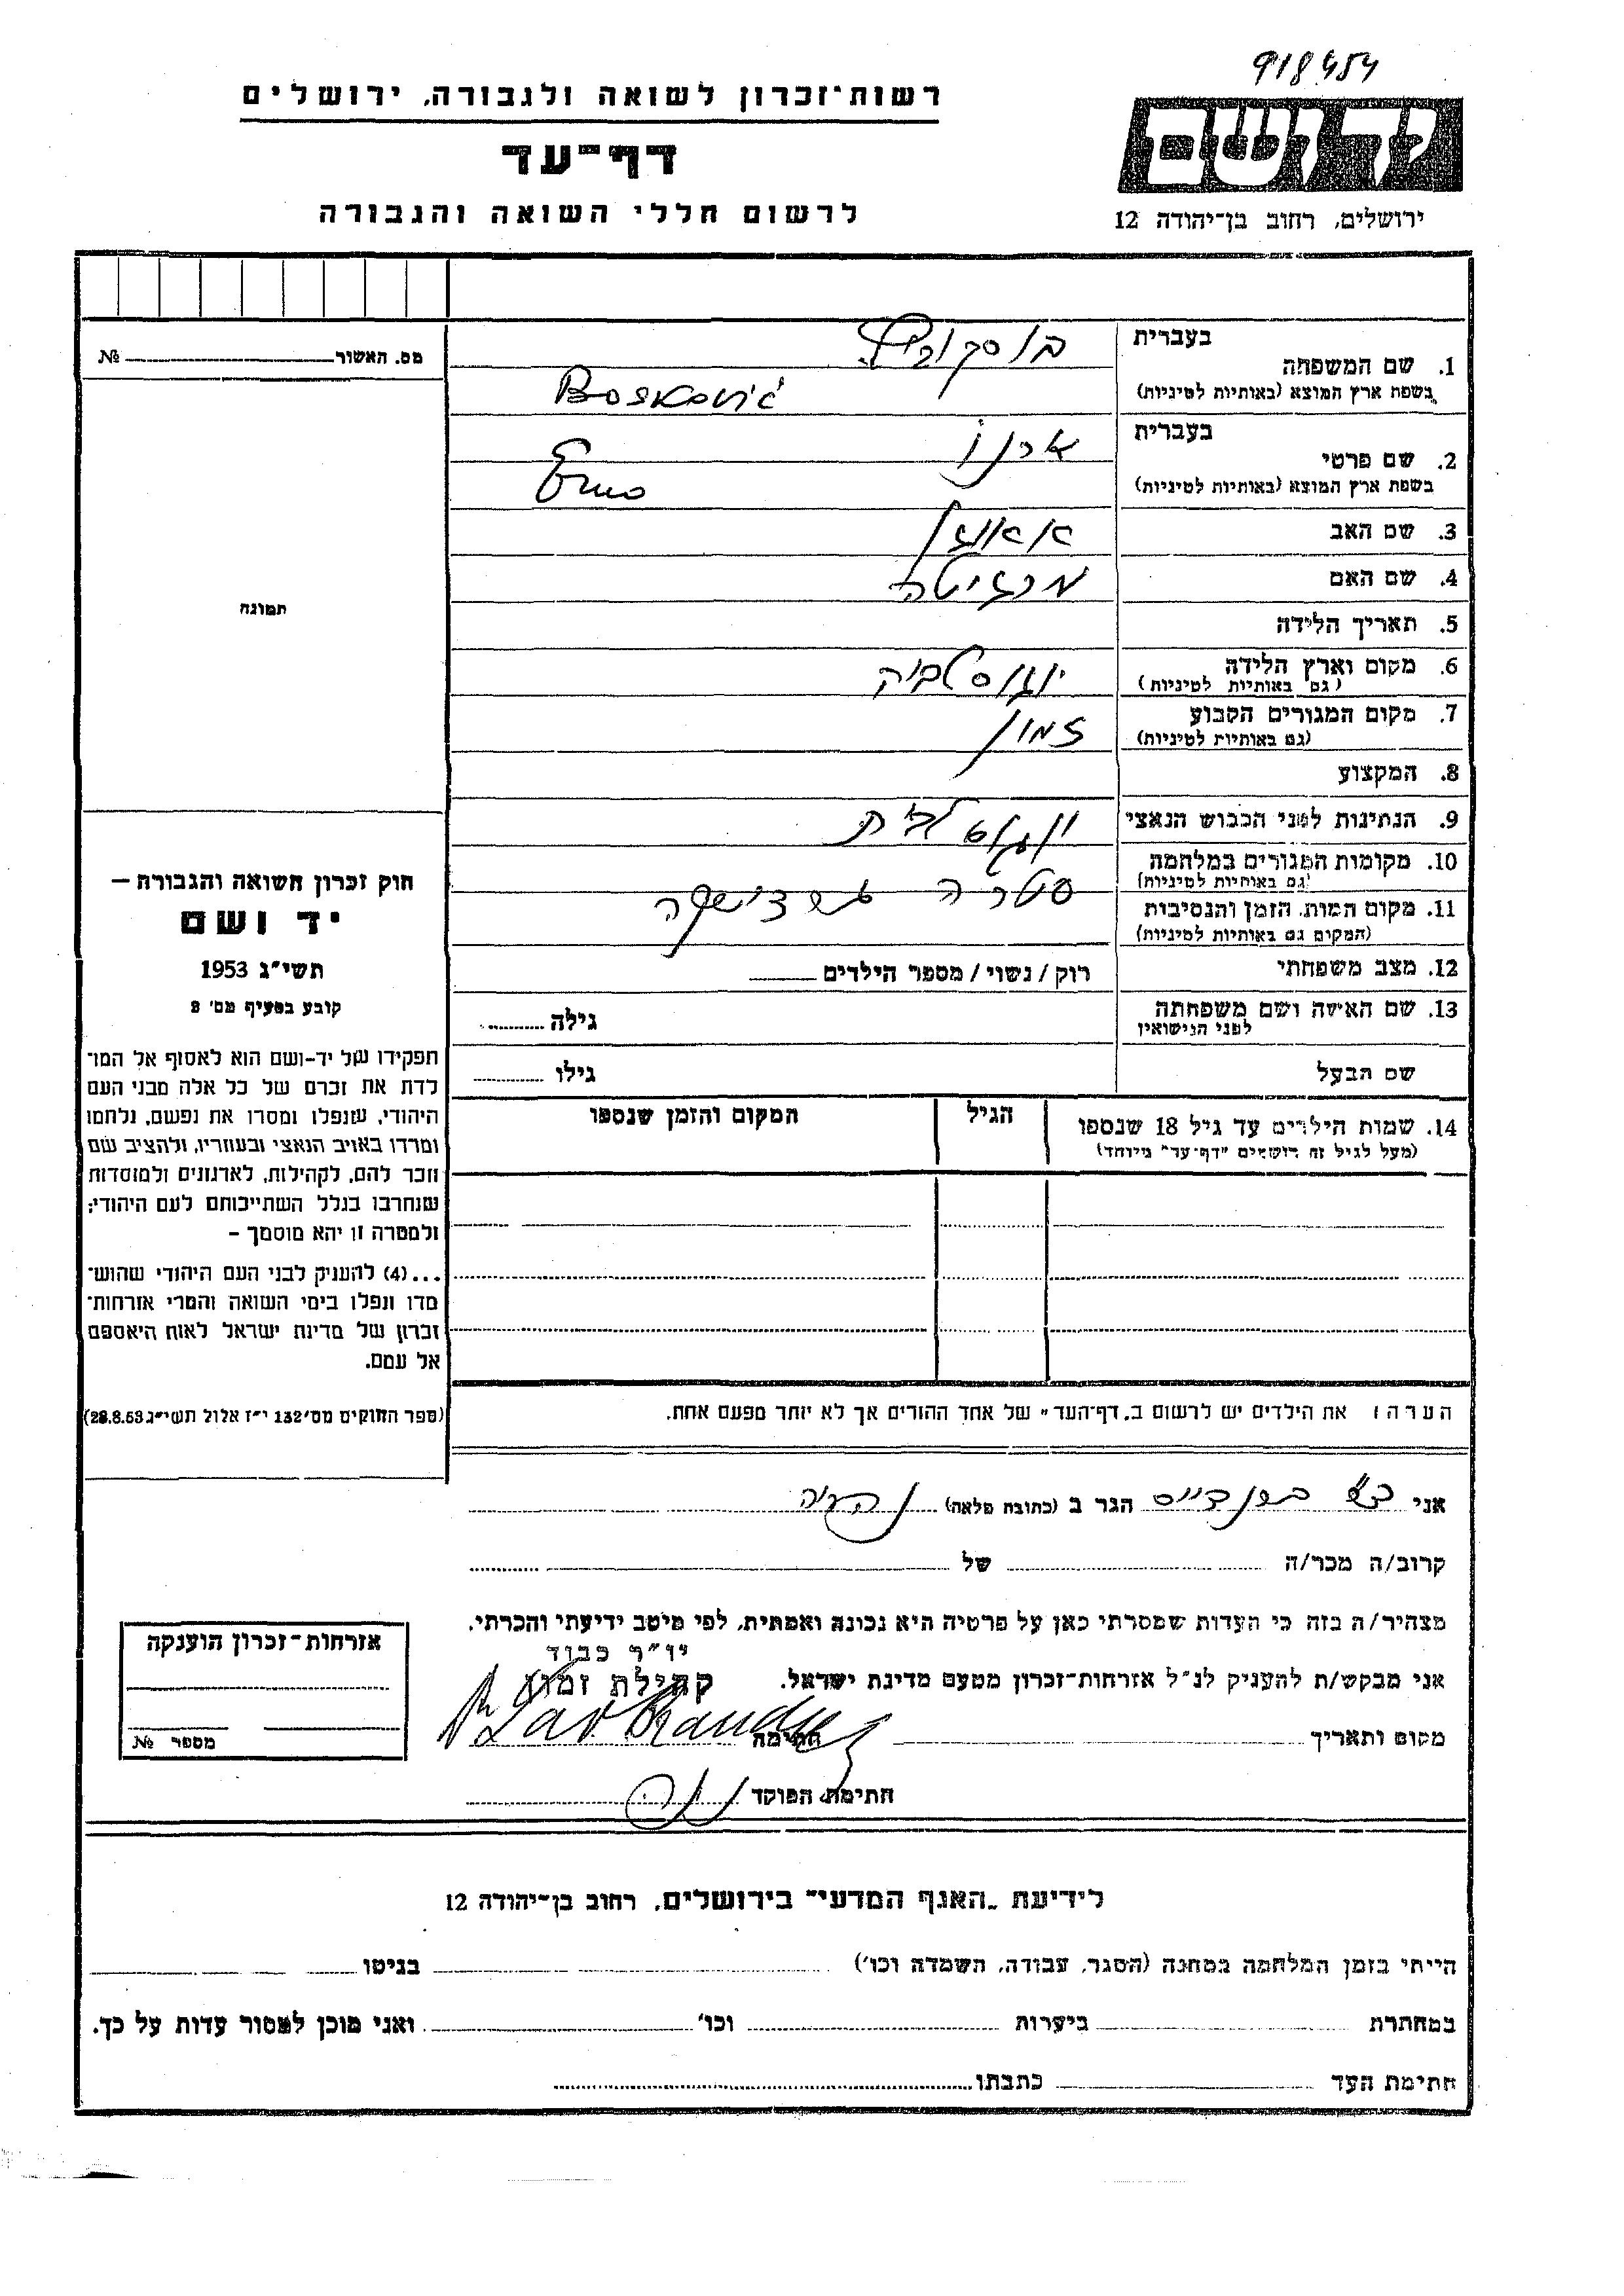 918454
רשות־זכרון לשואה ולגבורה, ירושלים
דף־עד
לרשום חללי השואה והגבורה
ידושם
ירושלים, רחוב בן־יהודה 12
בעברית
1. שם המשפחה
בשפת ארץ המוצא (באותיות לטיניות)
בוסקוביץ
Bosković
בעברית
2. שם פרטי
בשפת ארץ המוצא (באותיות לטיניות)
ארנו
Erno
3. שם האב
4. שם האם
5. תאריך הלידה
6. מקום וארץ הלידה
(גם באותיות לטיניות)
יוגוסלביה
7. מקום המגורים הקבוע
(גם באותיות לטיניות)
זמון
8. המקצוע
9. הנתינות לפני הכבוש הנאצי
יוגוסלבית
10. מקומות המגורים במלחמה
(גם באותיות לטיניות)
11. מקום המות, הזמן והנסיבות
(המקום גם באותיות לטיניות)
סטרה גרדישקה
12. מצב משפחתי
רוק / נשוי / מספר הילדים
13. שם האישה ושם משפחתה
לפני הנישואין
גילה
שם הבעל
גילו
14. שמות הילדים עד גיל 18 שנספו
(מעל לגיל זה רושמים "דף־עד" מיוחד)
הגיל
המקום והזמן שנספו
הערה: את הילדים יש לרשום ב„דף־העד" של אחד ההורים אך לא יותר מפעם אחת.
מס. האשור № 
תמונה
חוק זכרון השואה והגבורה —
יד ושם
תשי"ג 1953
קובע בסעיף מס' 2
תפקידו של יד-ושם הוא לאסוף אל המו־
לדת את זכרם של כל אלה מבני העם
היהודי, שנפלו ומסרו את נפשם, נלחמו
ומרדו באויב הנאצי ובעוזריו, ולהציב שם
וזכר להם, לקהילות, לארגונים ולמוסדות
שנחרבו בגלל השתייכותם לעם היהודי;
ולמטרה זו יהא מוסמך -
...(4) להעניק לבני העם היהודי שהוש־
מדו ונפלו בימי השואה והמרי אזרחות־
זכרון של מדינת ישראל לאות היאספם
אל עמם.
(ספר החוקים מס' 132 י"ז אלול תשי"ג 28.8.53)
אני ברנדייס הגר ב (כתובת מלאה) נהריה
קרוב/ה מכר/ה של
מצהיר/ה בזה כי העדות שמסרתי כאן על פרטיה היא נכונה ואמתית, לפי מיטב ידיעתי והכרתי.
יו"ר כבוד
קהילת זמון
אני מבקש/ת להעניק לנ"ל אזרחות־זכרון מטעם מדינת ישראל.
מקום ותאריך חתימה
חתימת הפוקד
אזרחות־זכרון הוענקה
מספר №
לידיעת „האגף המדעי" בירושלים, רחוב בן־יהודה 12
הייתי בזמן המלחמה במחנה (הסגר, עבודה, השמדה וכו') בגיטו
במחתרת ביערות וכו' ואני מוכן למסור עדות על כך.
חתימת העד כתבתו